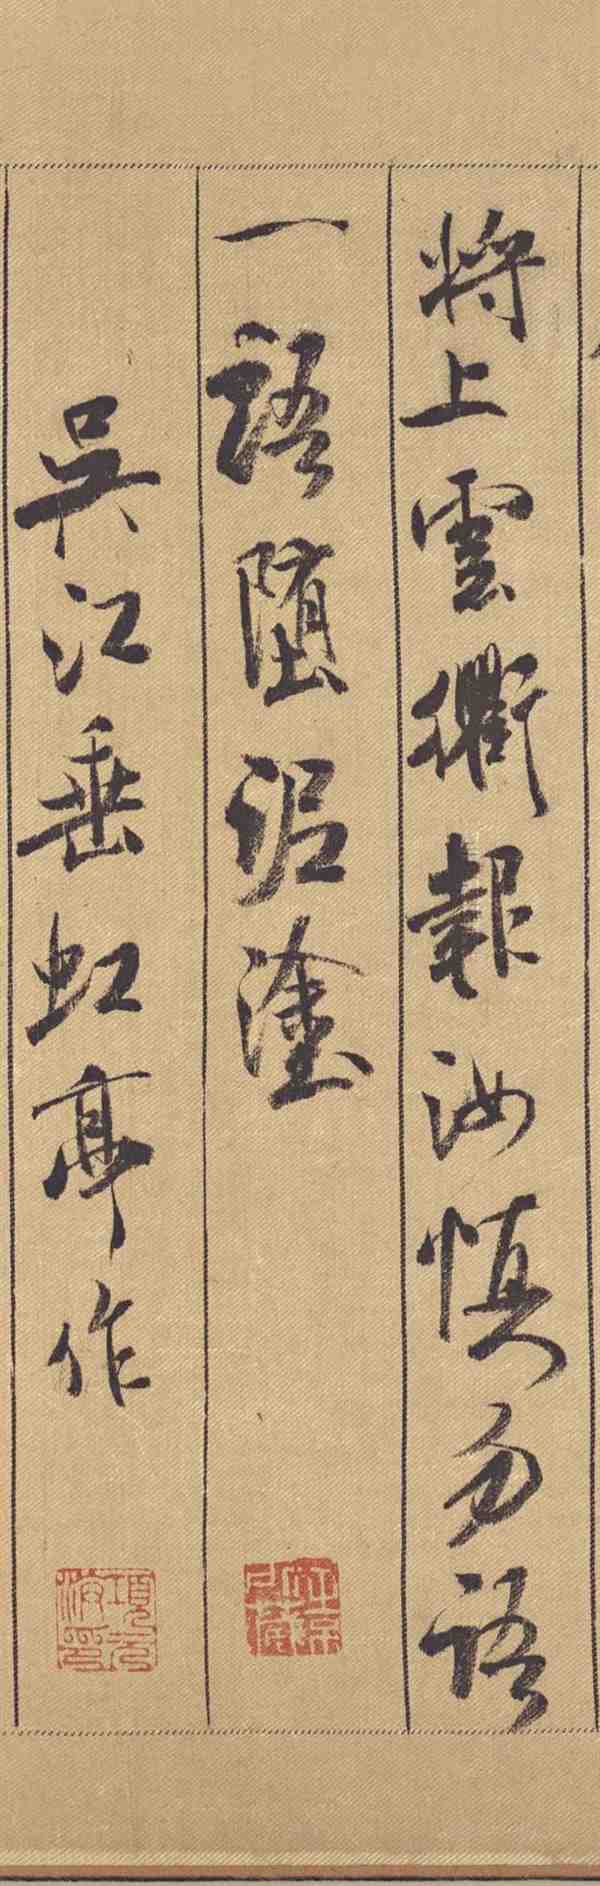 將上雲衢報汝慎勿語
一語墮泥塗
吳江垂虹亭作